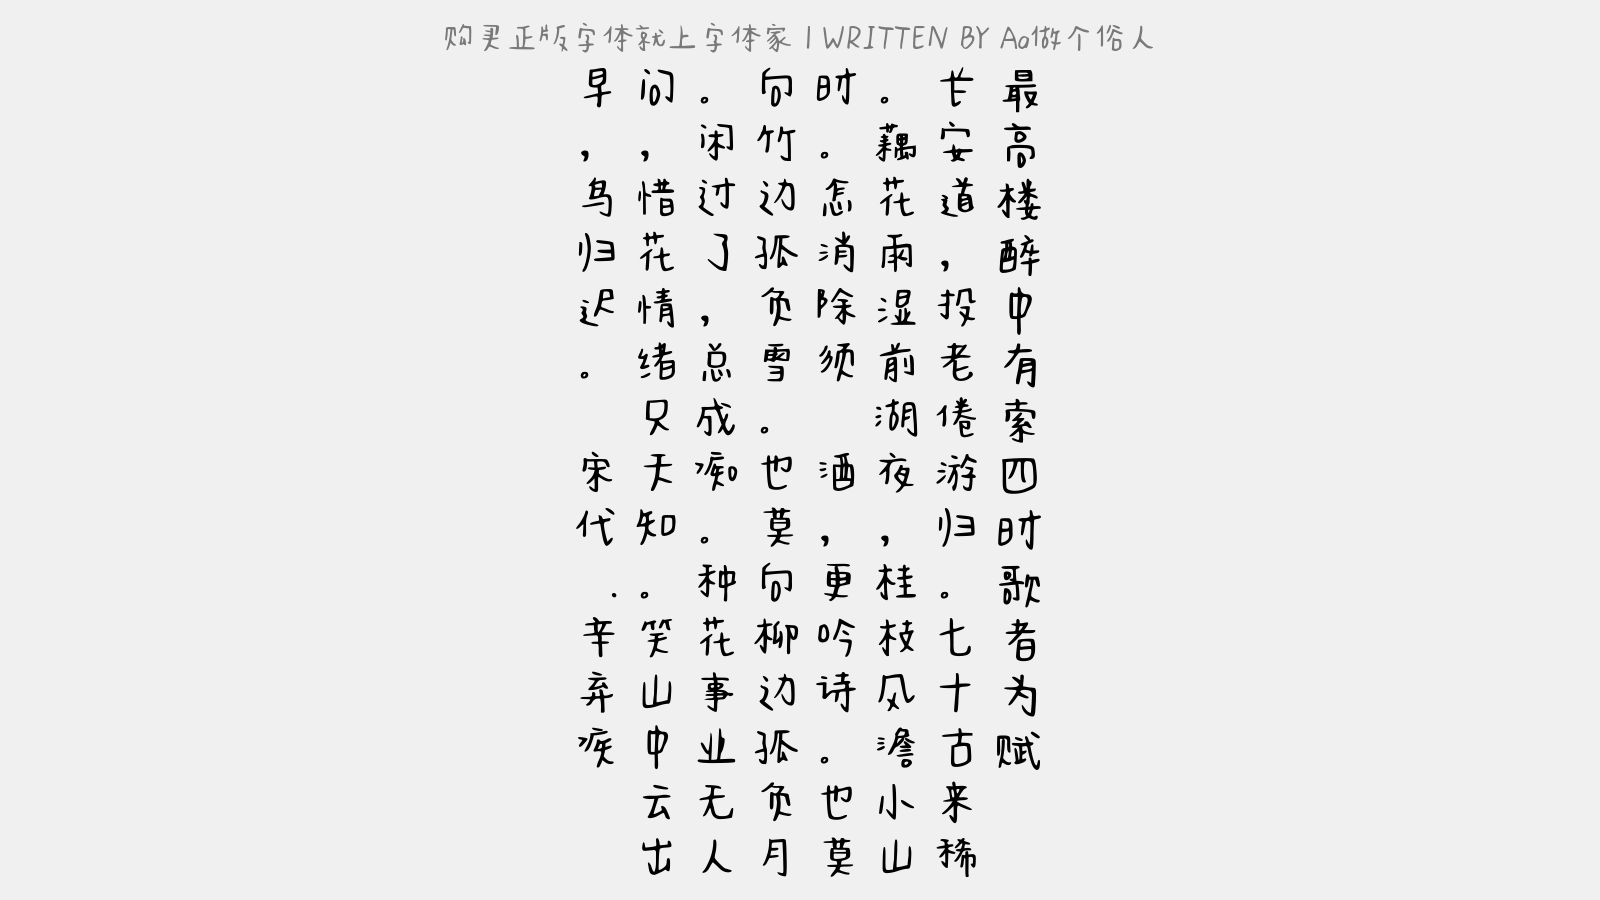 购买正版字体就上字体家 | WRITTEN BY Aa做个俗人
最高楼醉中有索四时歌者为赋
长安道，投老倦游归。七十古来稀
。藕花雨湿前湖夜，桂枝风澹小山
时。怎消除须 酒，更吟诗。也莫
向竹边孤负雪。也莫向柳边孤负月
。闲过了，总成痴。种花事业无人
问，惜花情绪只天知。笑山中云出
早，鸟归迟。 宋代.辛弃疾